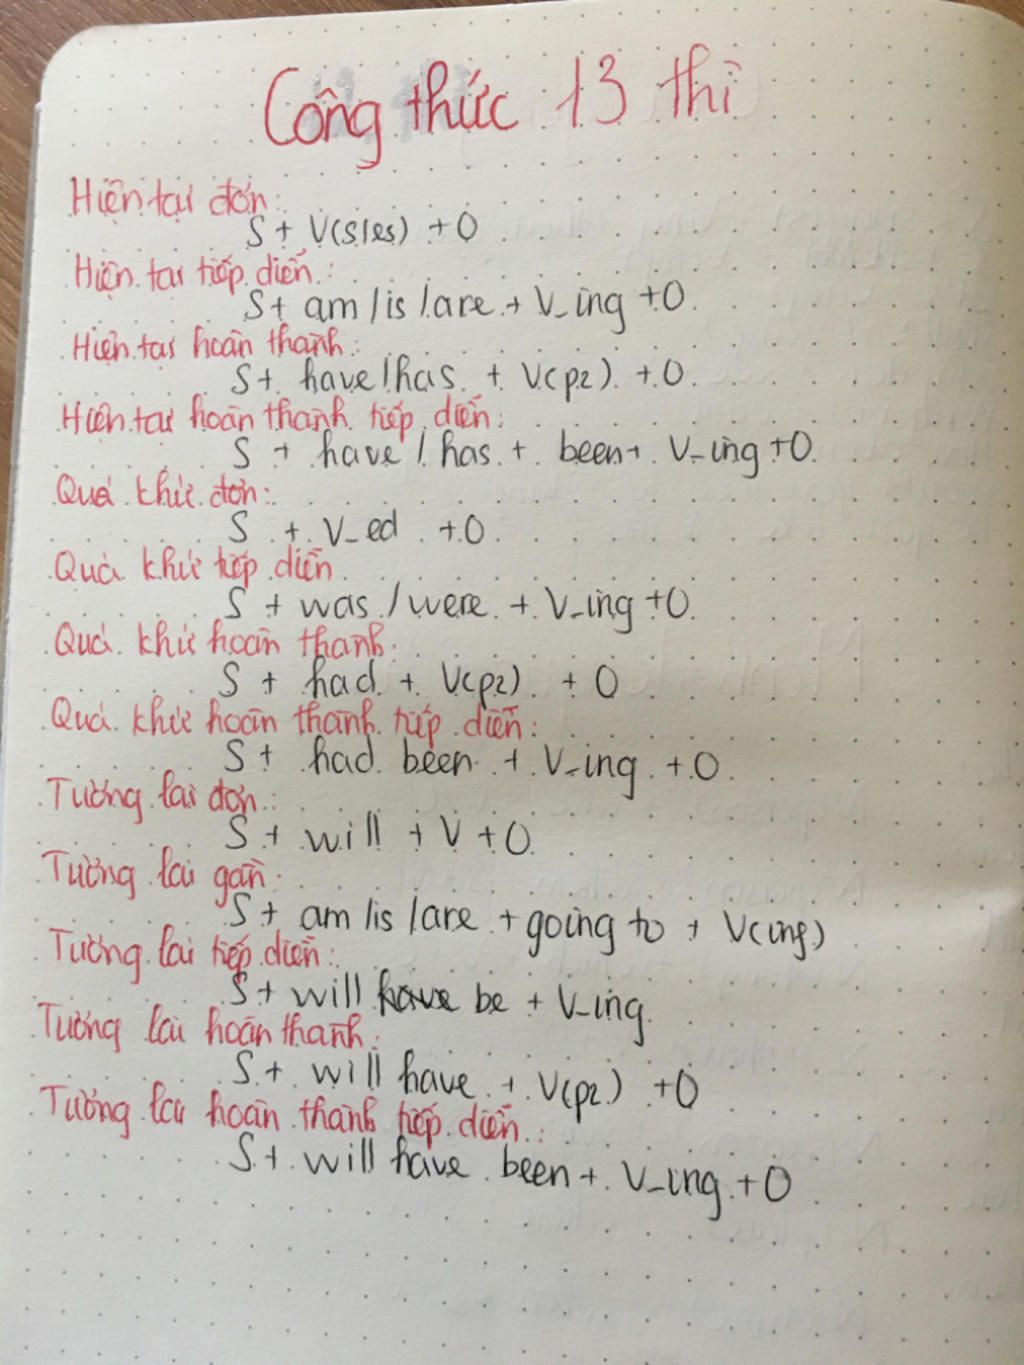 Công thức 13 thì
Hiện tại đơn:
S + V(s/es) + O
Hiện tại tiếp diễn:
S + am / is / are + V_ing + O
Hiện tại hoàn thành:
S + have / has + V(p2) + O
Hiện tại hoàn thành tiếp diễn:
S + have / has + been + V_ing + O
Quá khứ đơn:
S + V_ed + O
Quá khứ tiếp diễn
S + was / were + V_ing + O
Quá khứ hoàn thành:
S + had + V(p2) + O
Quá khứ hoàn thành tiếp diễn:
S + had been + V_ing + O
Tương lai đơn:
S + will + V + O
Tương lai gần:
S + am / is / are + going to + V(ing)
Tương lai tiếp diễn:
S + will have be + V_ing
Tương lai hoàn thành:
S + will have + V(p2) + O
Tương lai hoàn thành tiếp diễn:
S + will have been + V_ing + O